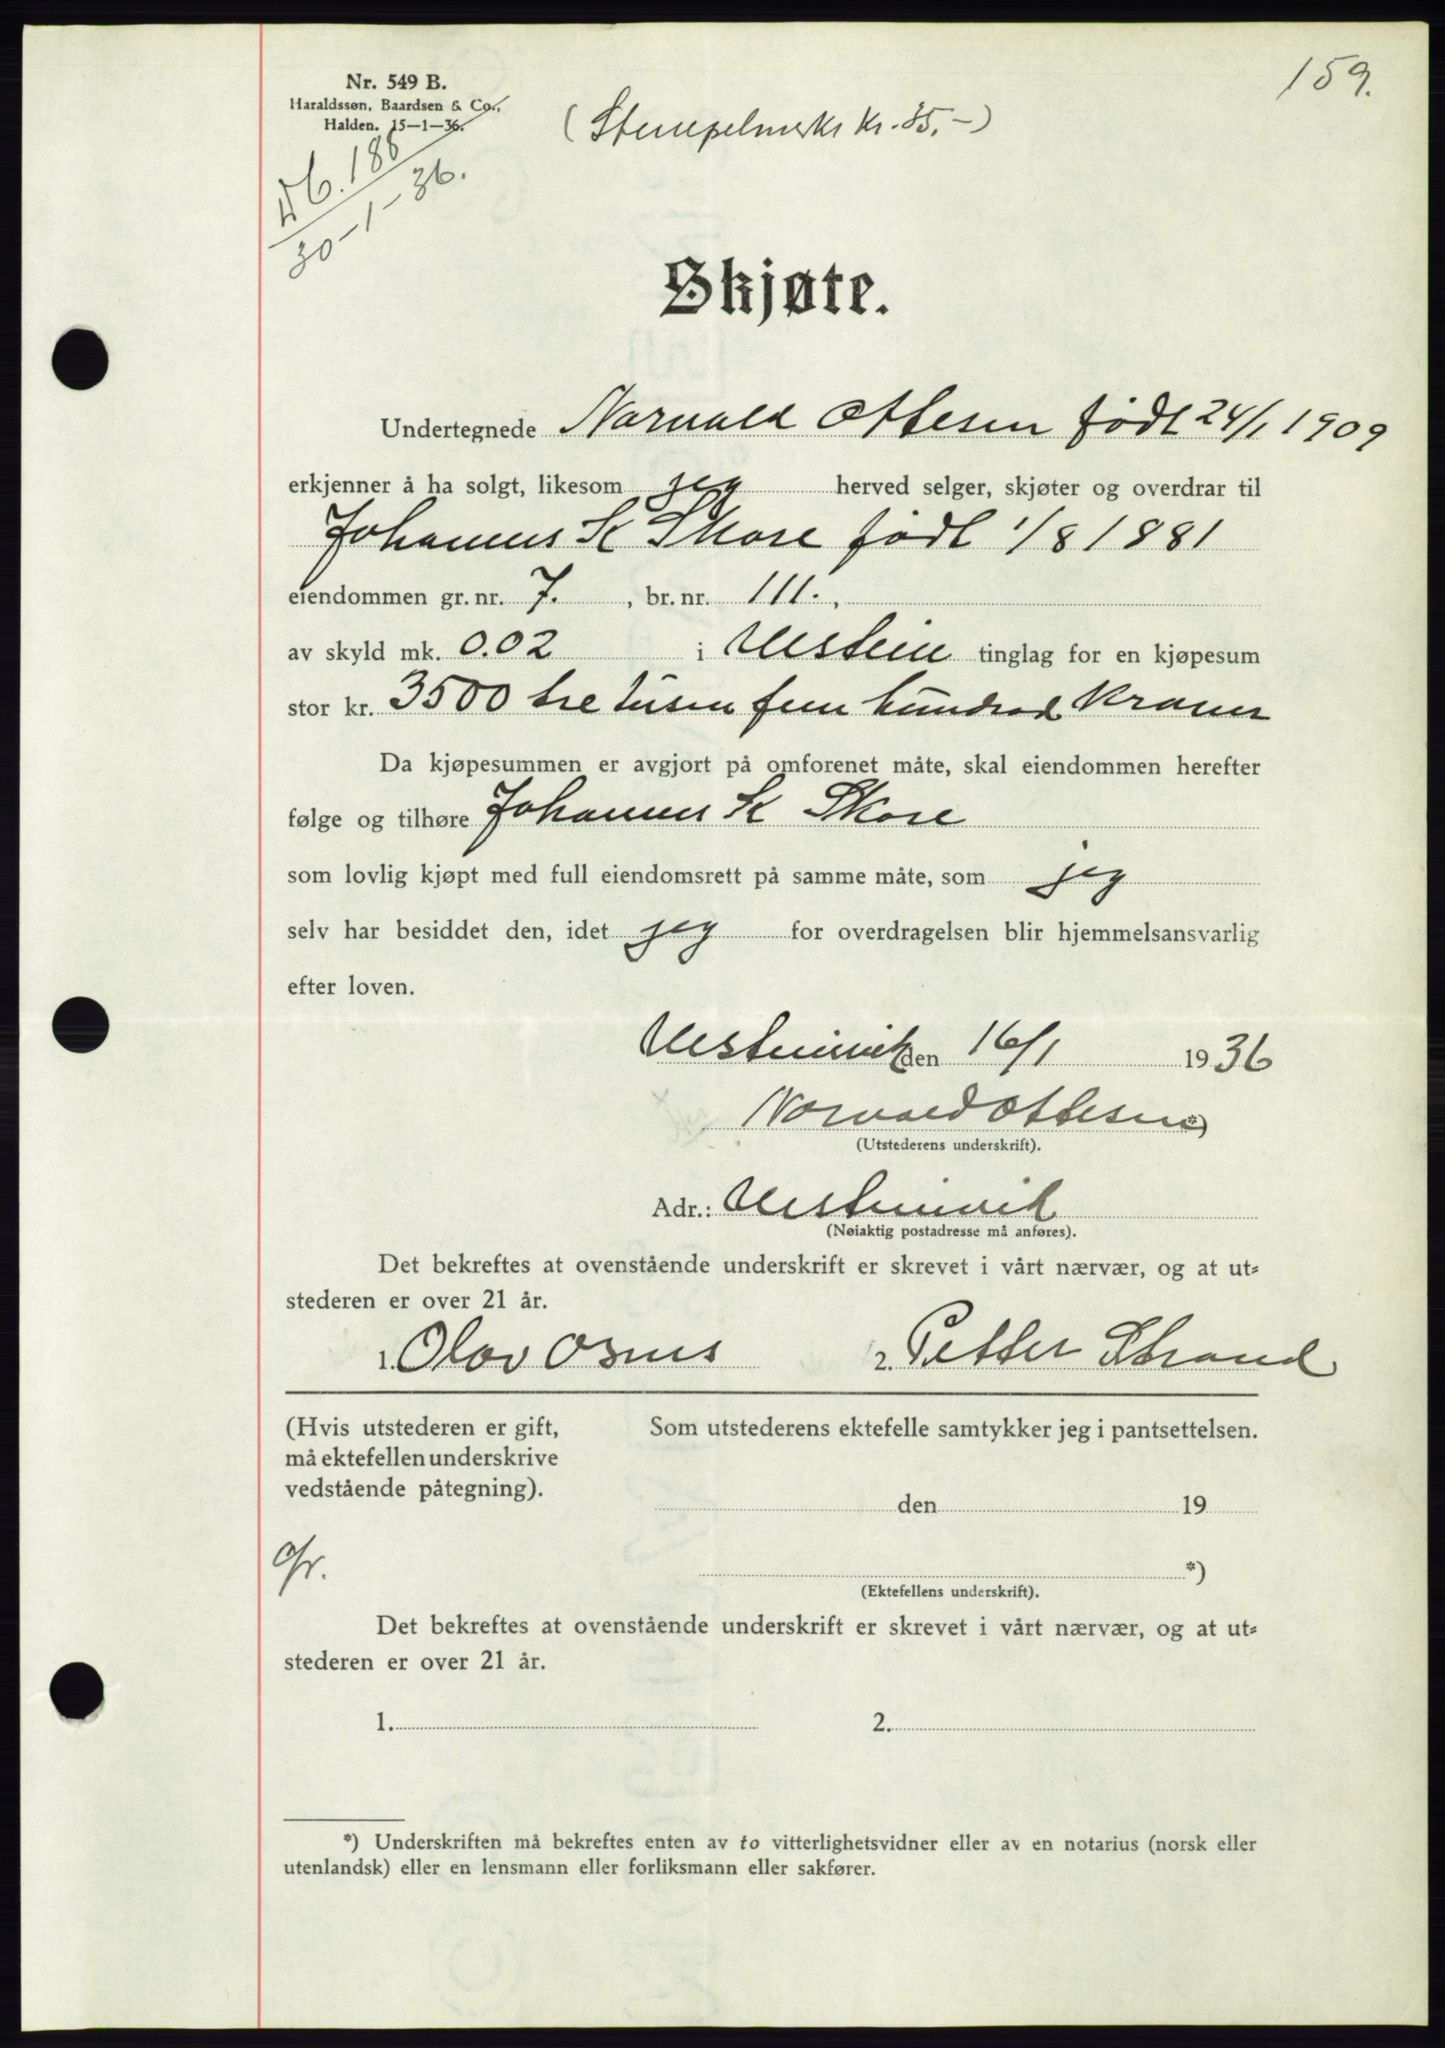 159.
Nr. 549 B.
Haraldssøn, Baardsen & Co.,
Halden. 15-1-36.
(Stempelmerke kr. 35.-)
Db. 188
30-1-36.
Skjøte.
Undertegnede Norvald Ottesen født 24/1 1909
erkjenner å ha solgt, likesom jeg herved selger, skjøter og overdrar til
Johannes K Skare født 1/8 1881
eiendommen gr. nr. 7. , br. nr. 111. ,
av skyld mk. 0.02 i Ulstein tinglag for en kjøpesum
stor kr. 3500 tre tusen fem hundred Kroner
Da kjøpesummen er avgjort på omforenet måte, skal eiendommen herefter
følge og tilhøre Johannes K Skare
som lovlig kjøpt med full eiendomsrett på samme måte, som jeg
selv har besiddet den, idet jeg for overdragelsen blir hjemmelsansvarlig
efter loven.
Ulsteinvik den 16/1 1936
Norvald Ottesen *)
(Utstederens underskrift).
Adr.: Ulsteinvik
(Nøiaktig postadresse må anføres).
Det bekreftes at ovenstående underskrift er skrevet i vårt nærvær, og at ut-
stederen er over 21 år.
1. Olav Osnes 2. Petter Strand
(Hvis utstederen er gift,
må ektefellen underskrive
vedstående påtegning).
Som utstederens ektefelle samtykker jeg i pantsettelsen.
den 19
*)
(Ektefellens underskrift).
Det bekreftes at ovenstående underskrift er skrevet i vårt nærvær, og at ut-
stederen er over 21 år.
1. 2.
*) Underskriften må bekreftes enten av to vitterlighetsvidner eller av en notarius (norsk eller
utenlandsk) eller en lensmann eller forliksmann eller sakfører.